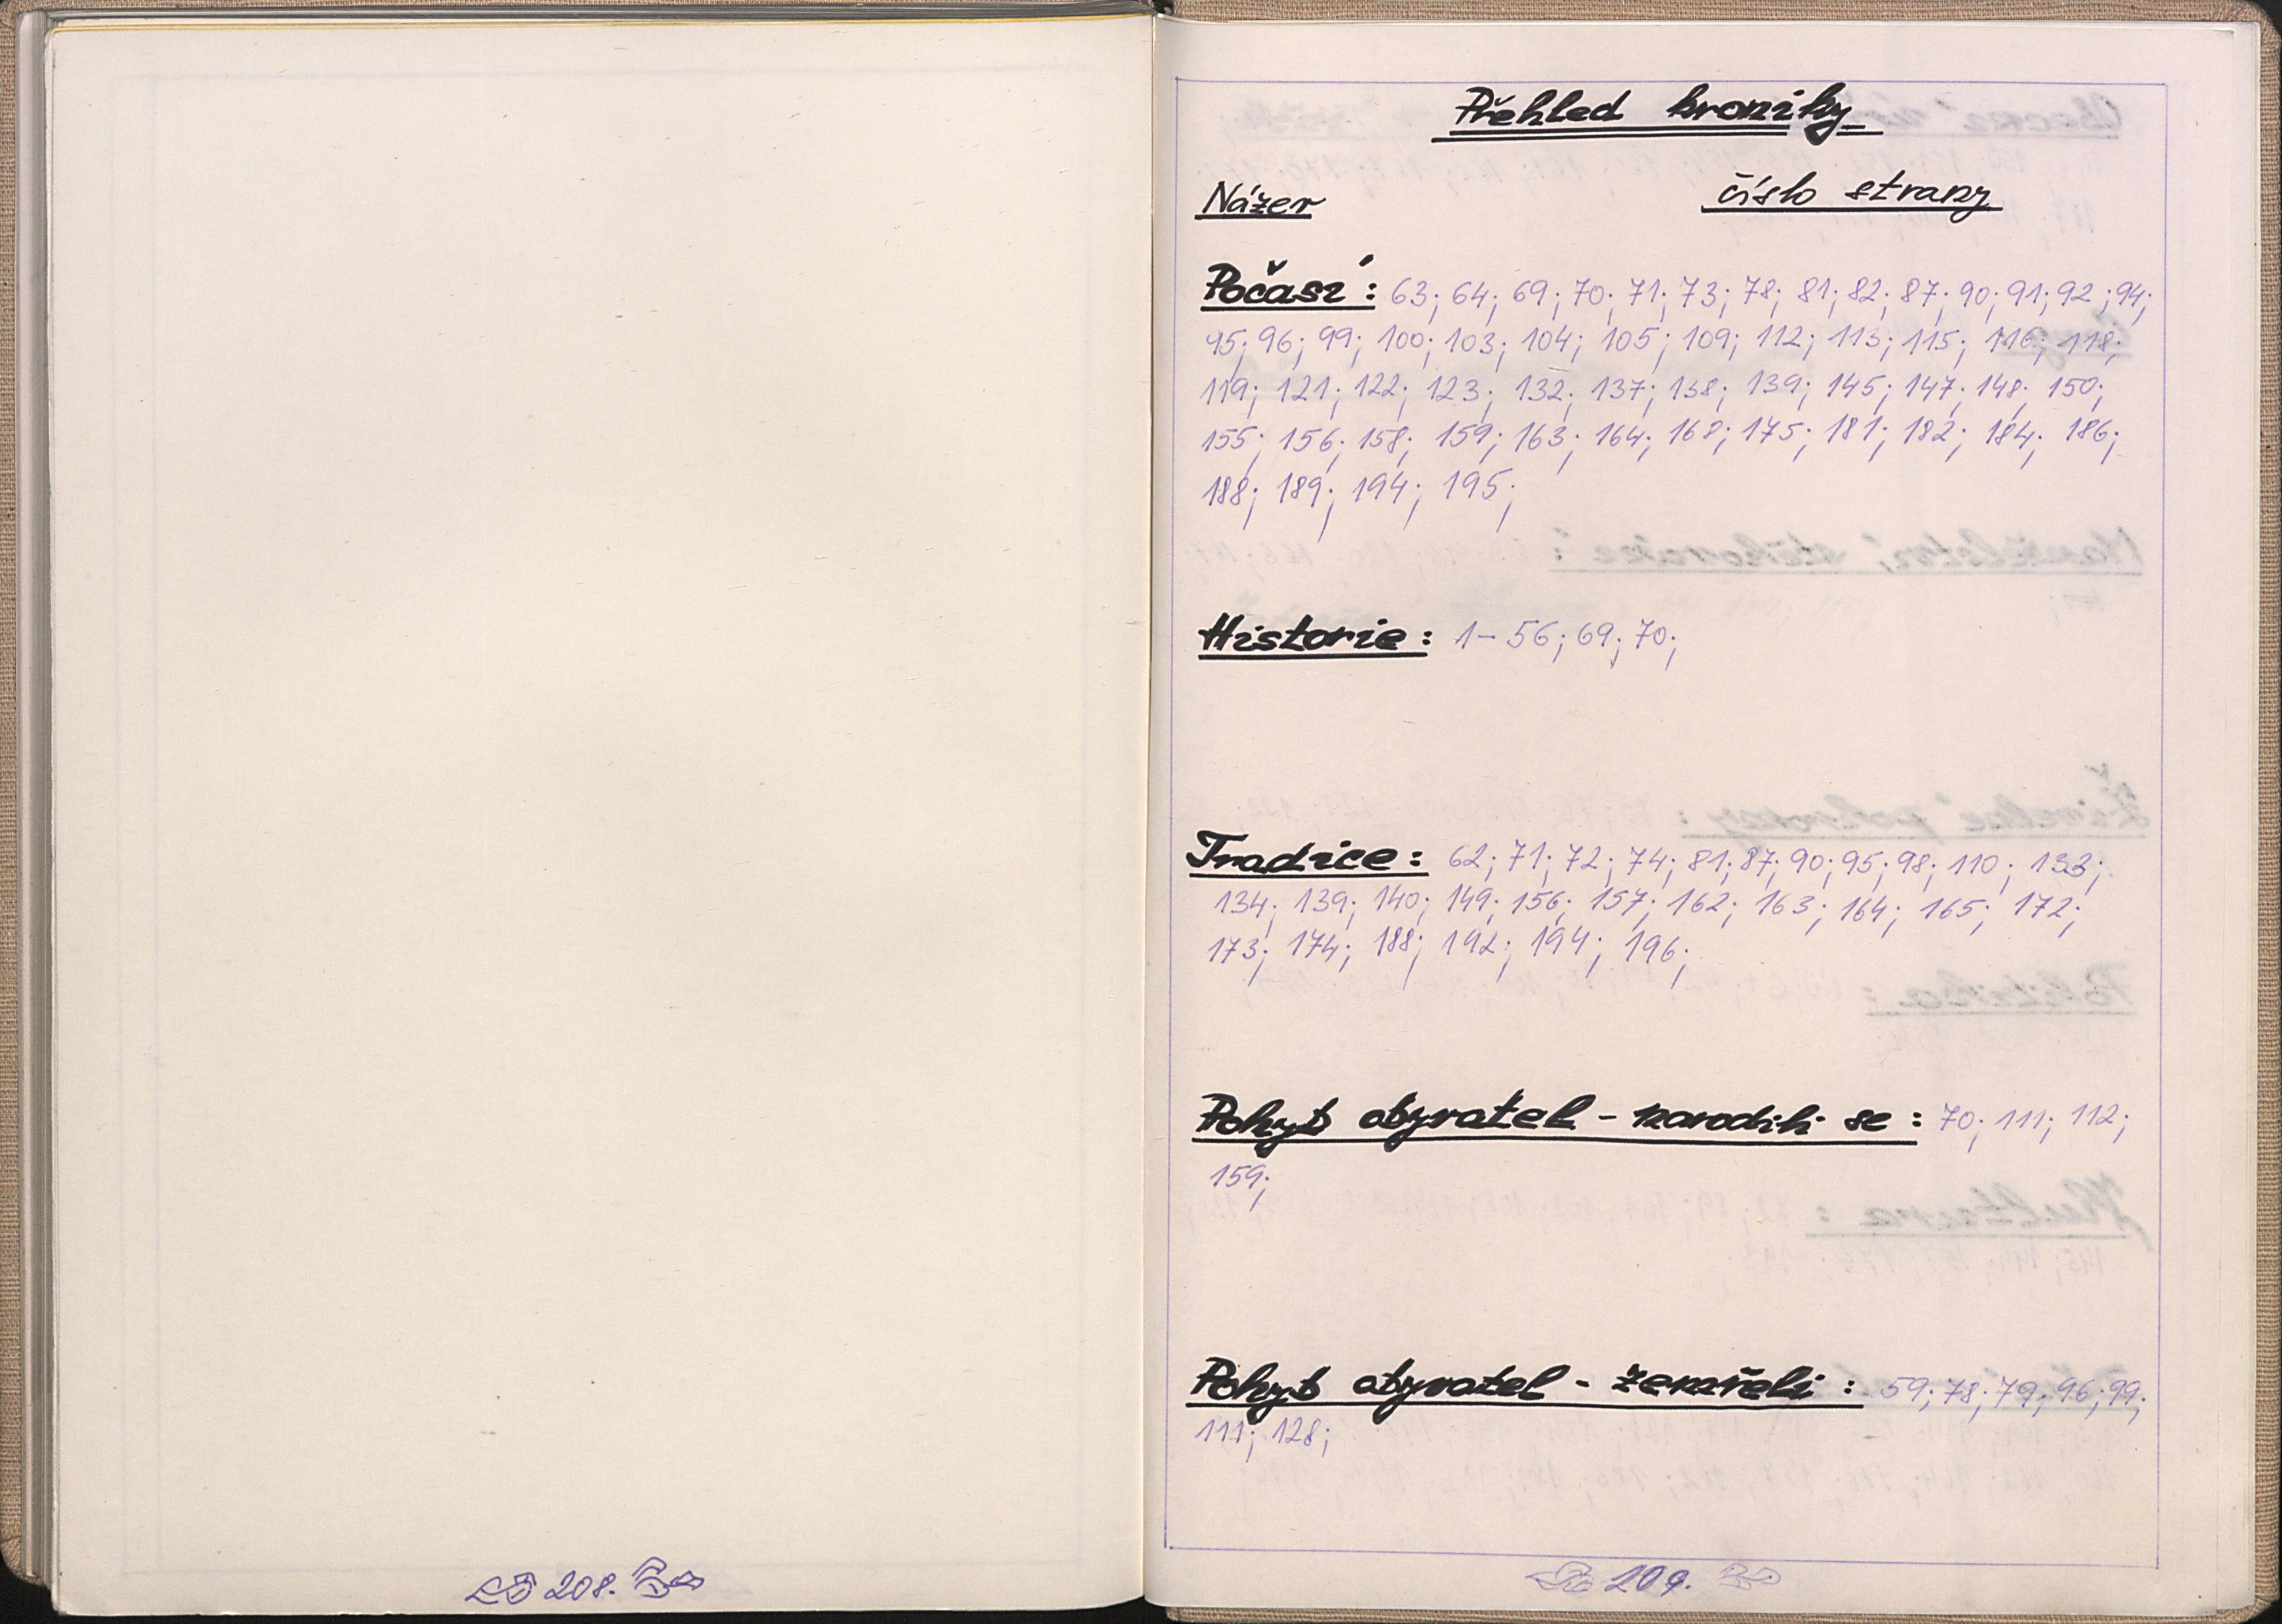 208.
Přehled kroniky
Název číslo strany
Počasí: 63; 64; 69; 70; 71; 73; 78; 81; 82; 87; 90; 91; 92; 94;
95; 96; 99; 100; 103; 104; 105; 109; 112; 113; 115; 116; 118;
119; 121; 122; 123; 132; 137; 138; 139; 145; 147; 148; 150;
155; 156; 158; 159; 163; 164; 168; 175; 181; 182; 184; 186;
188; 189; 194; 195;
Historie: 1-56; 69; 70;
Tradice: 62; 71; 72; 74; 81; 87; 90; 95; 98; 110; 133;
134; 139; 140; 149; 156; 157; 162; 163; 164; 165; 172;
173; 174; 188; 192; 194; 196;
Pohyb obyvatel - narodili se: 70; 111; 112;
159;
Pohyb obyvatel - zemřeli: 59; 78; 79; 96; 99;
111; 128;
209.